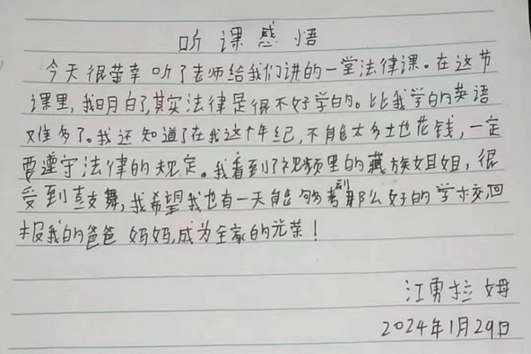 听课感悟
今天很荣幸听了老师给我们讲的一堂法律课。在这节
课里,我明白了其实法律是很不好学的。比我学的英语
难多了。我还知道了在我这个年纪,不能大多土也花钱,一定
要遵守法律的规定。我看到了视频里的藏族姐姐,很
受到鼓舞,我希望我也有一天能够考到那么好的学校,回
报我的爸爸妈妈,成为全家的光荣!
江勇拉姆
2024年1月29日